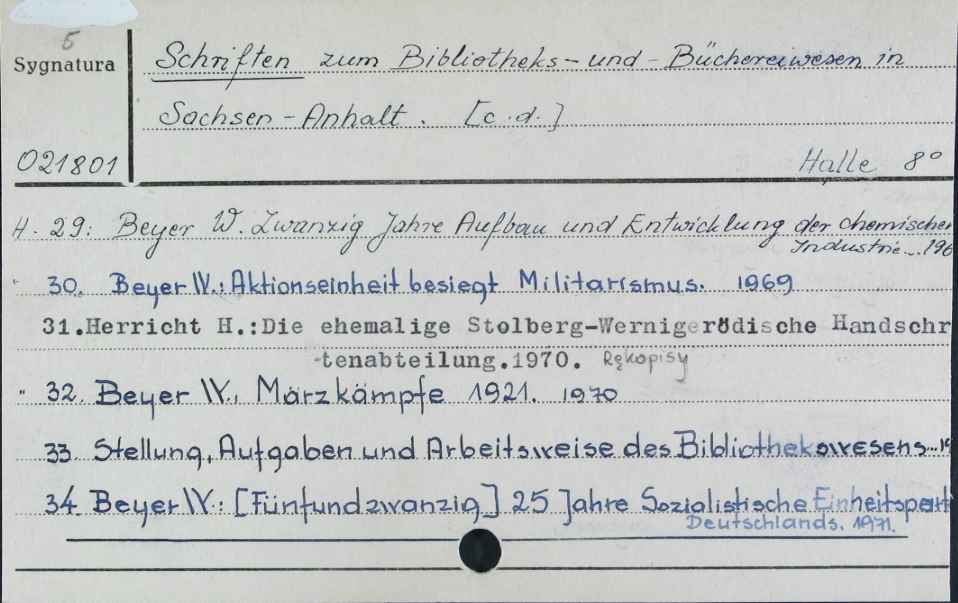 5
Sygnatura
Schriften zum Bibliotheks-und-Büchereiwesen in
Sachsen-Anhalt. [c.d.]
021801
Halle 8°
H. 29: Beyer W. Zwanzig Jahre Aufbau und Entwicklung der chemischen
Industrie...196
30. Beyer W.: Aktionseinheit besiegt Militarismus. 1969
31.Herricht H.:Die ehemalige Stolberg-Wernigerödische Handschr
-tenabteilung.1970. Rękopisy
" 32. Beyer W., Märzkämpfe 1921. 1970
33. Stellung, Aufgaben und Arbeitsweise des Bibliothekswesens...19
34. Beyer W.: [Fünfundzwanzig] 25 Jahre Sozialistische Einheitspart
Deutschlands. 1971.